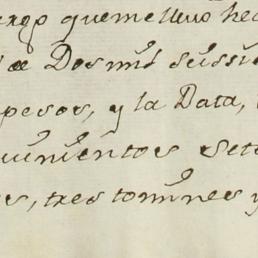 argo quemelluo hec
Dos mil seissi
pesos, y la Data,
quinientos sete
s, tres tomines y